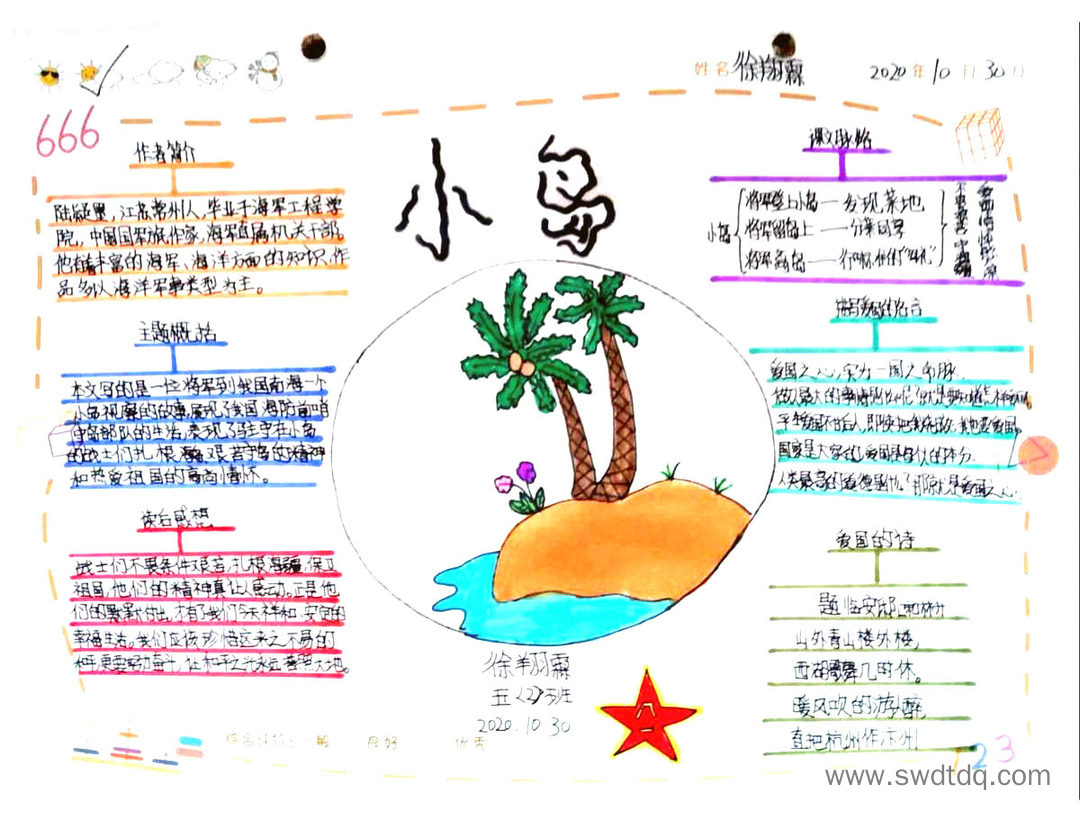 姓名 徐翔霖 2020年10月30日
666
小岛
作者简介
陆颖墨，江苏常州人，毕业于海军工程学
院，中国国军旅作家，海军直属机关干部。
他有着丰富的海军、海洋方面的知识，作
品多以海洋军事类型为主。
主题概括
本文写的是一位将军到我国南海一个
小岛视察的故事，展现了我国海防前哨
守岛部队的生活，表现了驻守在小岛
的战士们扎根海疆，艰苦守岛的精神
和热爱祖国的高尚情怀。
读后感想
战士们不畏条件艰苦，扎根海疆，保卫
祖国，他们的精神真让人感动。正是他
们的默默付出，才有了我们今天祥和、安宁的
幸福生活。我们应该珍惜这来之不易的
和平，更要努力奋斗，让和平之光永远普照大地。
课文脉络
小岛
将军登上小岛——发现菜地
将军留岛上——分菜
将军离岛——行
爱国的名言
爱国之心，实为一国之命脉。
国家是大家的，爱国是每人的本分。
人类最高的道德是什么？那就是爱国之心。
爱国的诗
题临安邸
山外青山楼外楼，
西湖歌舞几时休。
暖风吹的游人醉，
直把杭州作汴州
徐翔霖
五〈2〉班
2020.10.30
八一
良好 优秀
123
www.swdtdq.com